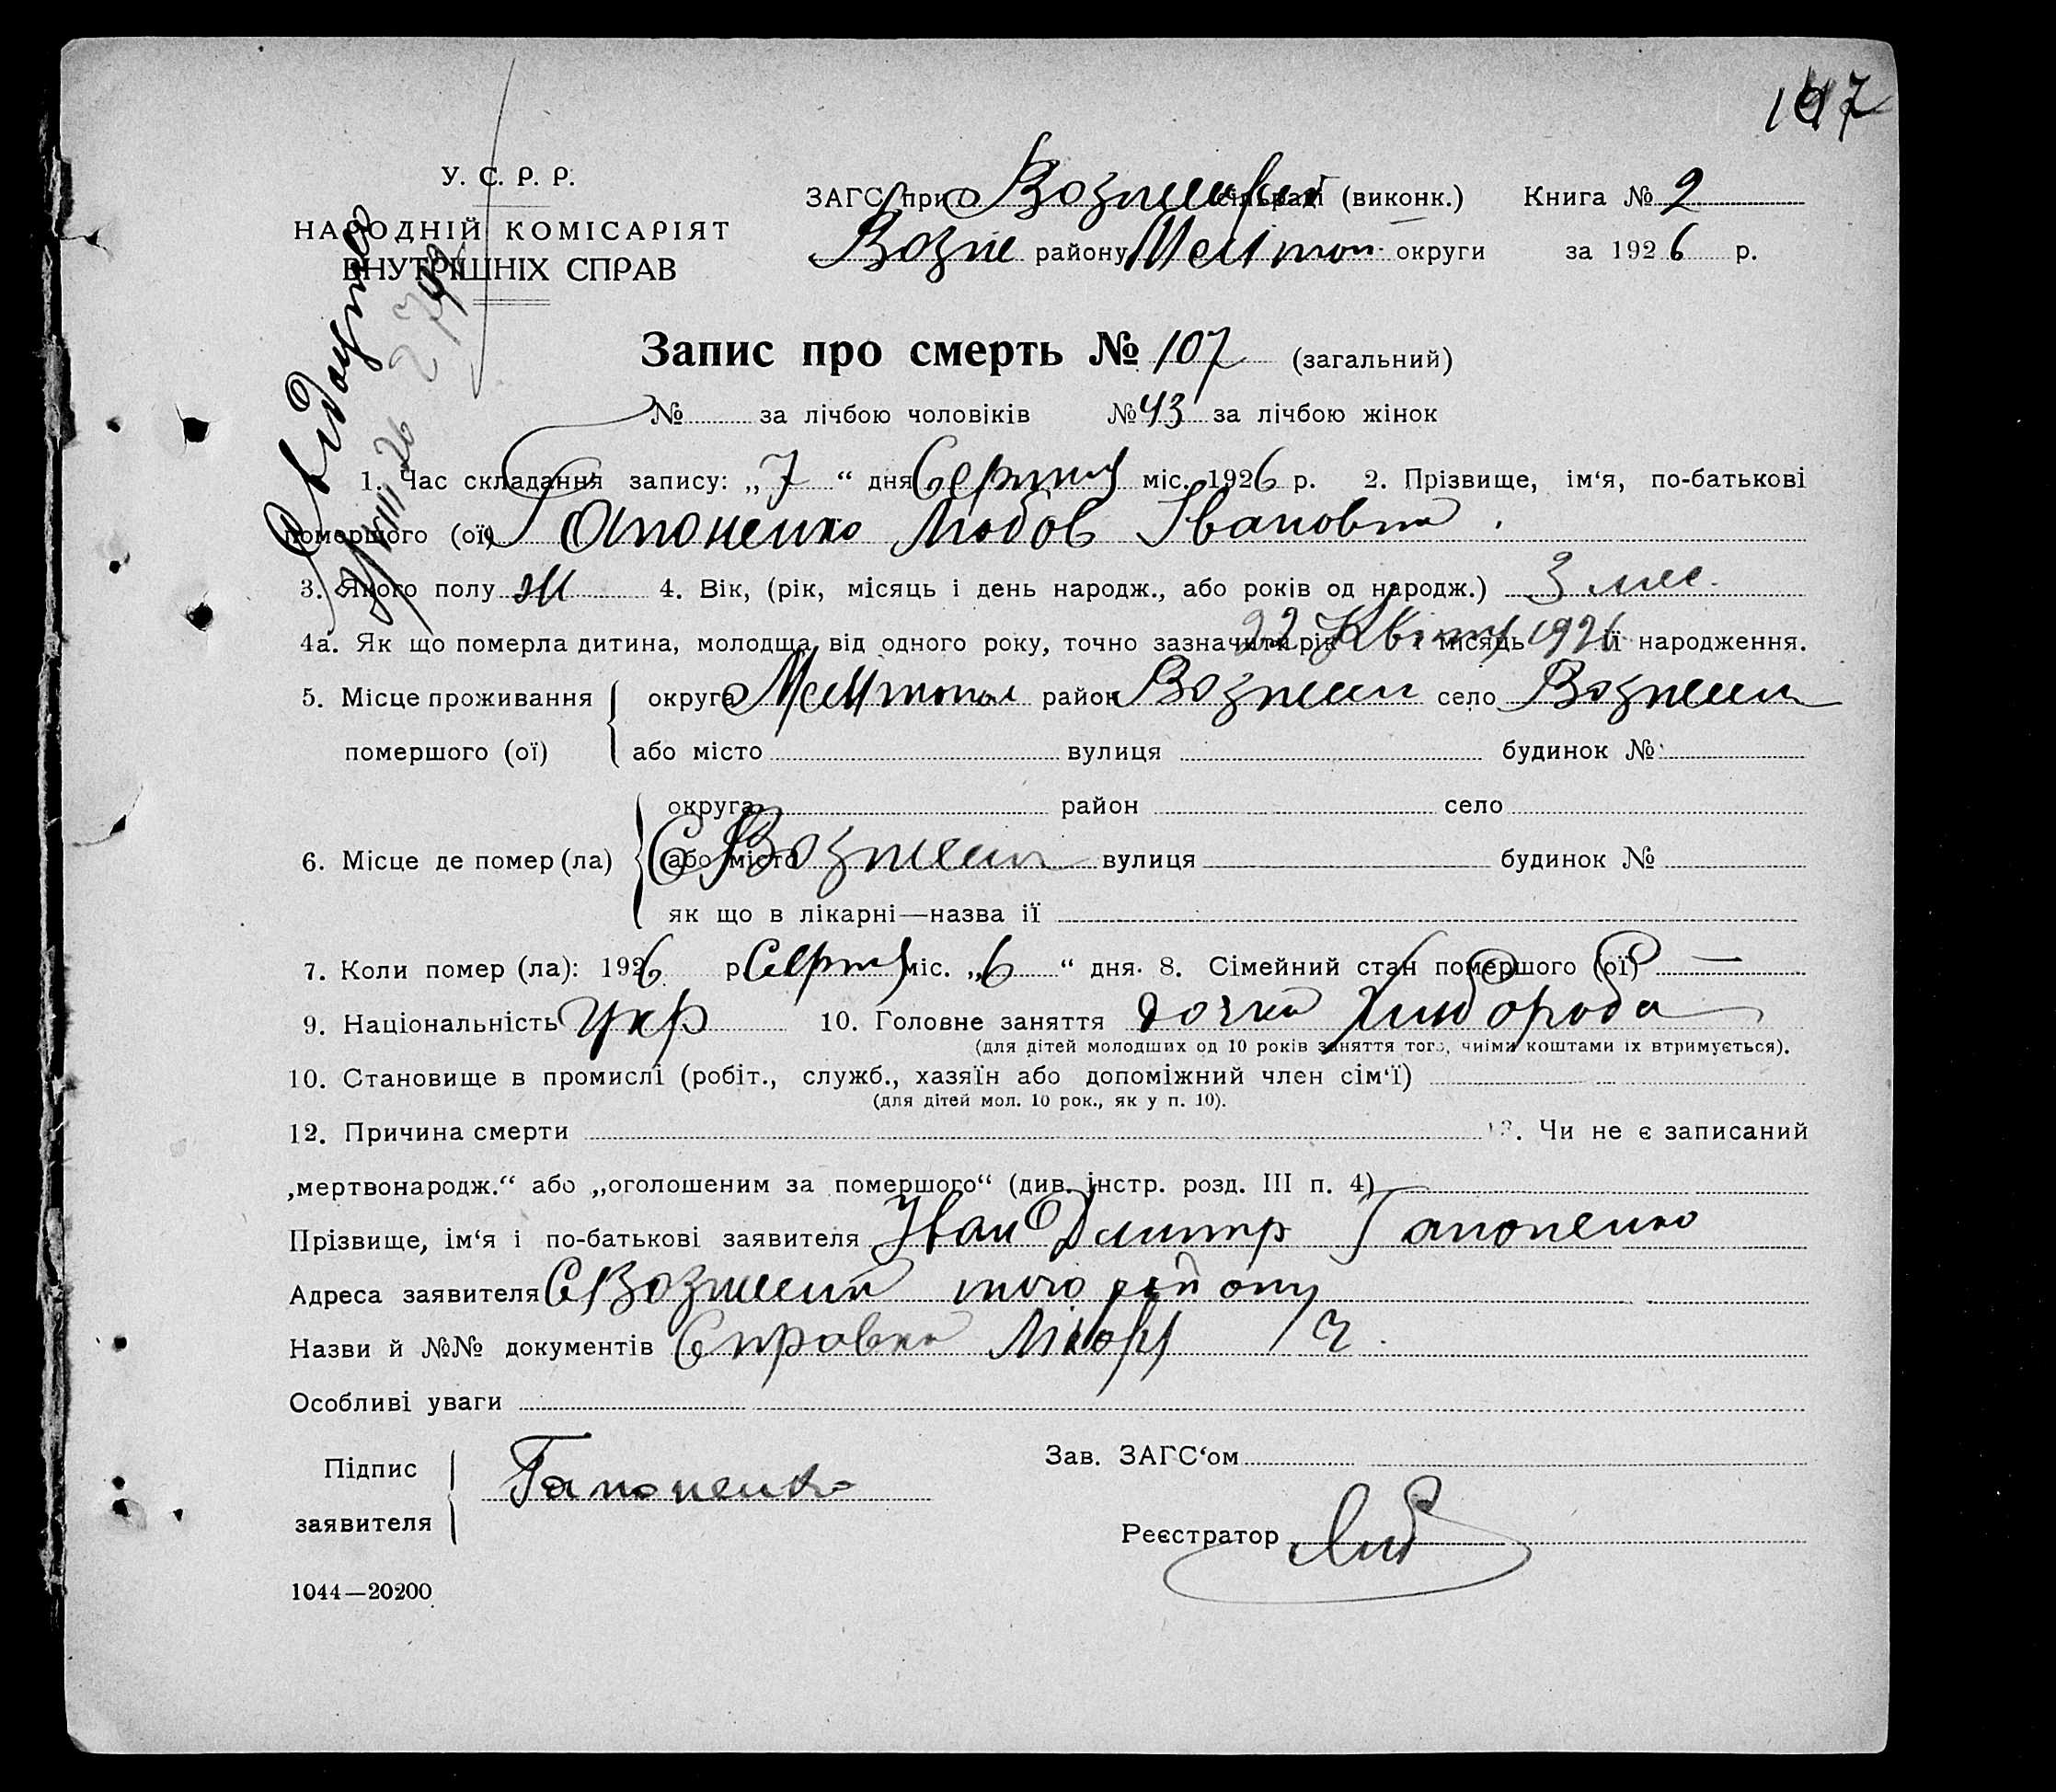 У. С. Р. Р.
НАРОДНІЙ КОМІСАРІЯТ
ВНУТРІШНІХ СПРАВ
ЗАГС при сільраді (виконк.) Книга № 2
Возне району Мелітоп округи за 1926 р.
Запис про смерть № 107 (загальний)
№ за лічбою чоловіків № 43 за лічбою жінок
1. Час складання запису: „7“ дня Серпня міс. 1926 р. 2. Прізвище, ім‘я, по-батькові
помершого (ої) Гапоненко Любов Івановна
3. Якого полу Ж 4. Вік, (рік, місяць і день народж., або років од народж.) 3 мес.
4а. Як що померла дитина, молодща від одного року, точно зазначити рік і місяць її народження. 22 Квітня 1926
5. Місце проживання помершого (ої) округа Мелітопол район Вознесен село Вознесен
або місто вулиця будинок №
6. Місце де помер (ла) округа район село
або місто С Вознесен вулиця будинок №
як що в лікарні—назва ії
7. Коли помер (ла): 1926 р Серпня міс. „6“ дня. 8. Сімейний стан помершого (ої) —
9. Національність Укр 10. Головне заняття дочка Хлібороба
(для дітей молодших од 10 років заняття того, чиїми коштами їх втримується).
10. Становище в промислі (робіт., служб., хазяїн або допоміжний член сім‘ї)
(для дітей мол. 10 рок., як у п. 10).
12. Причина смерти 13. Чи не є записаний
„мертвонародж.“ або „оголошеним за помершого“ (див. інстр. розд. III п. 4)
Прізвище, ім‘я і по-батькові заявителя Іван Дмитр Гапоненко
Адреса заявителя С Вознесен того району
Назви й №№ документів Справка
Особливі уваги
Підпис заявителя Гапоненко
Зав. ЗАГС‘ом
Реєстратор
1044—20200